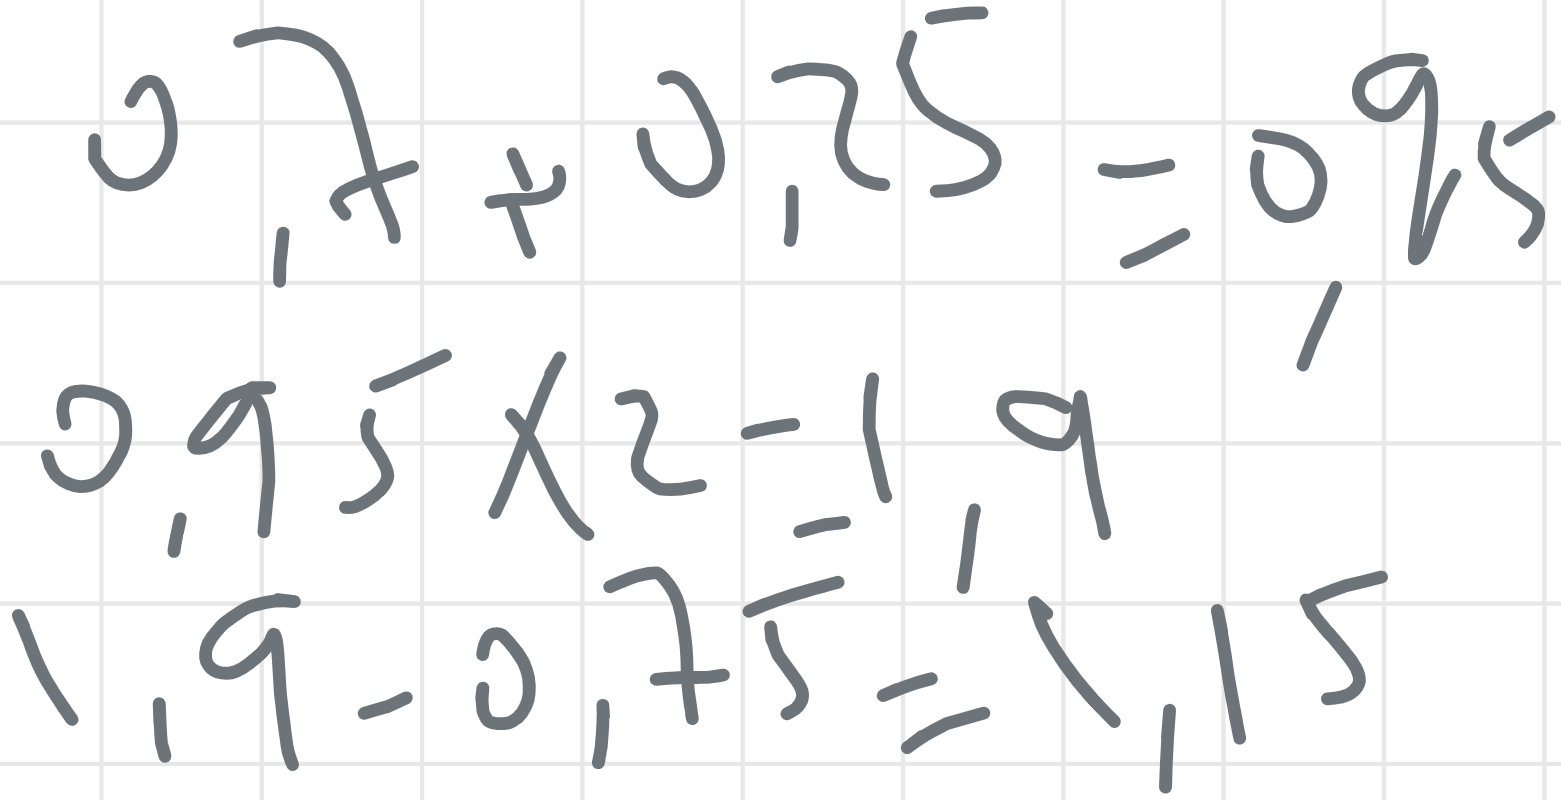 0,7 + 0,25 = 0,95
0,95 x 2 = 1,9
1,9 - 0,75 = 1,15